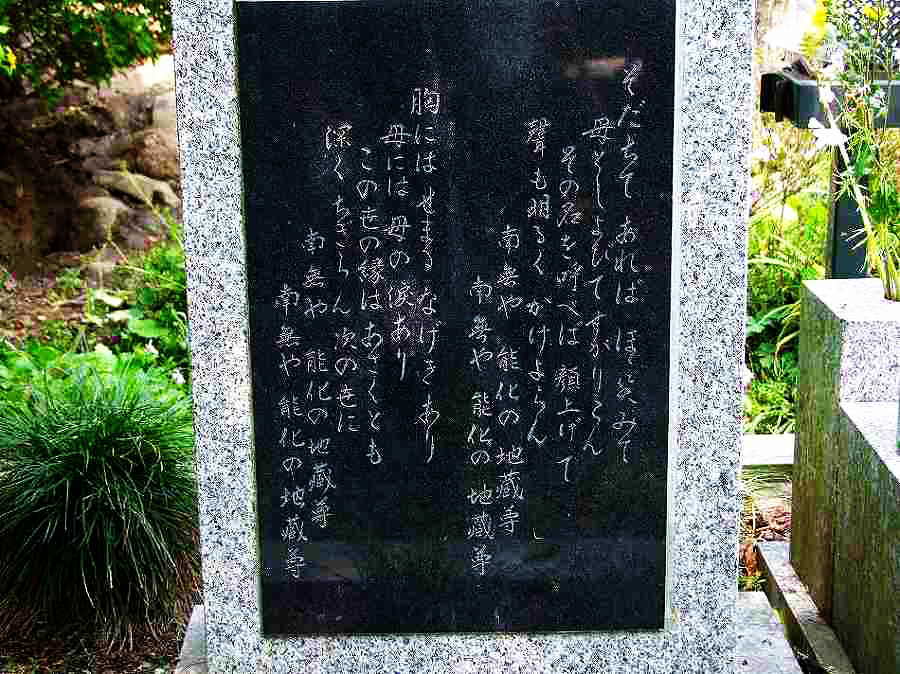 そだちて あれば ほゝ笑みて
母としよびて すがりこん
その名を呼べば 顔上げて
聲も明るく かけよらん
南無や 能化の地蔵尊
南無や 能化の地蔵尊
胸にはせまる なげきあり
母には母の 涙あり
この世の縁は あさくとも
深く ちぎらん 次の世に
南無や 能化の地蔵尊
南無や 能化の地蔵尊